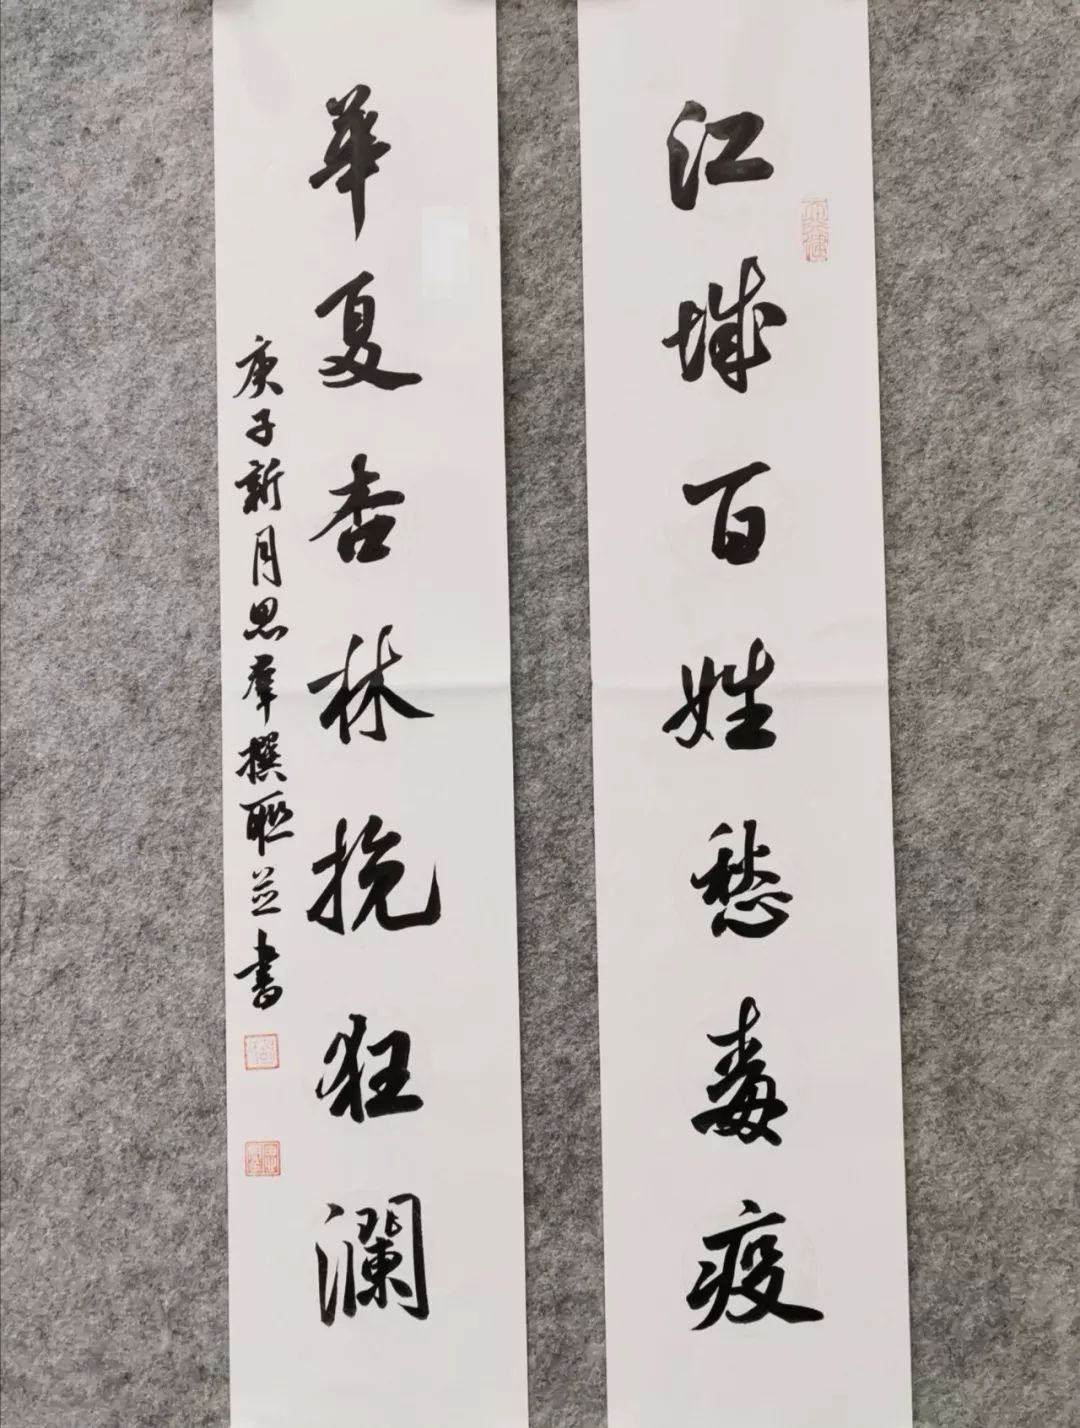 江城百姓愁毒疫
華夏杏林挽狂澜
庚子新月思羣撰聯並書